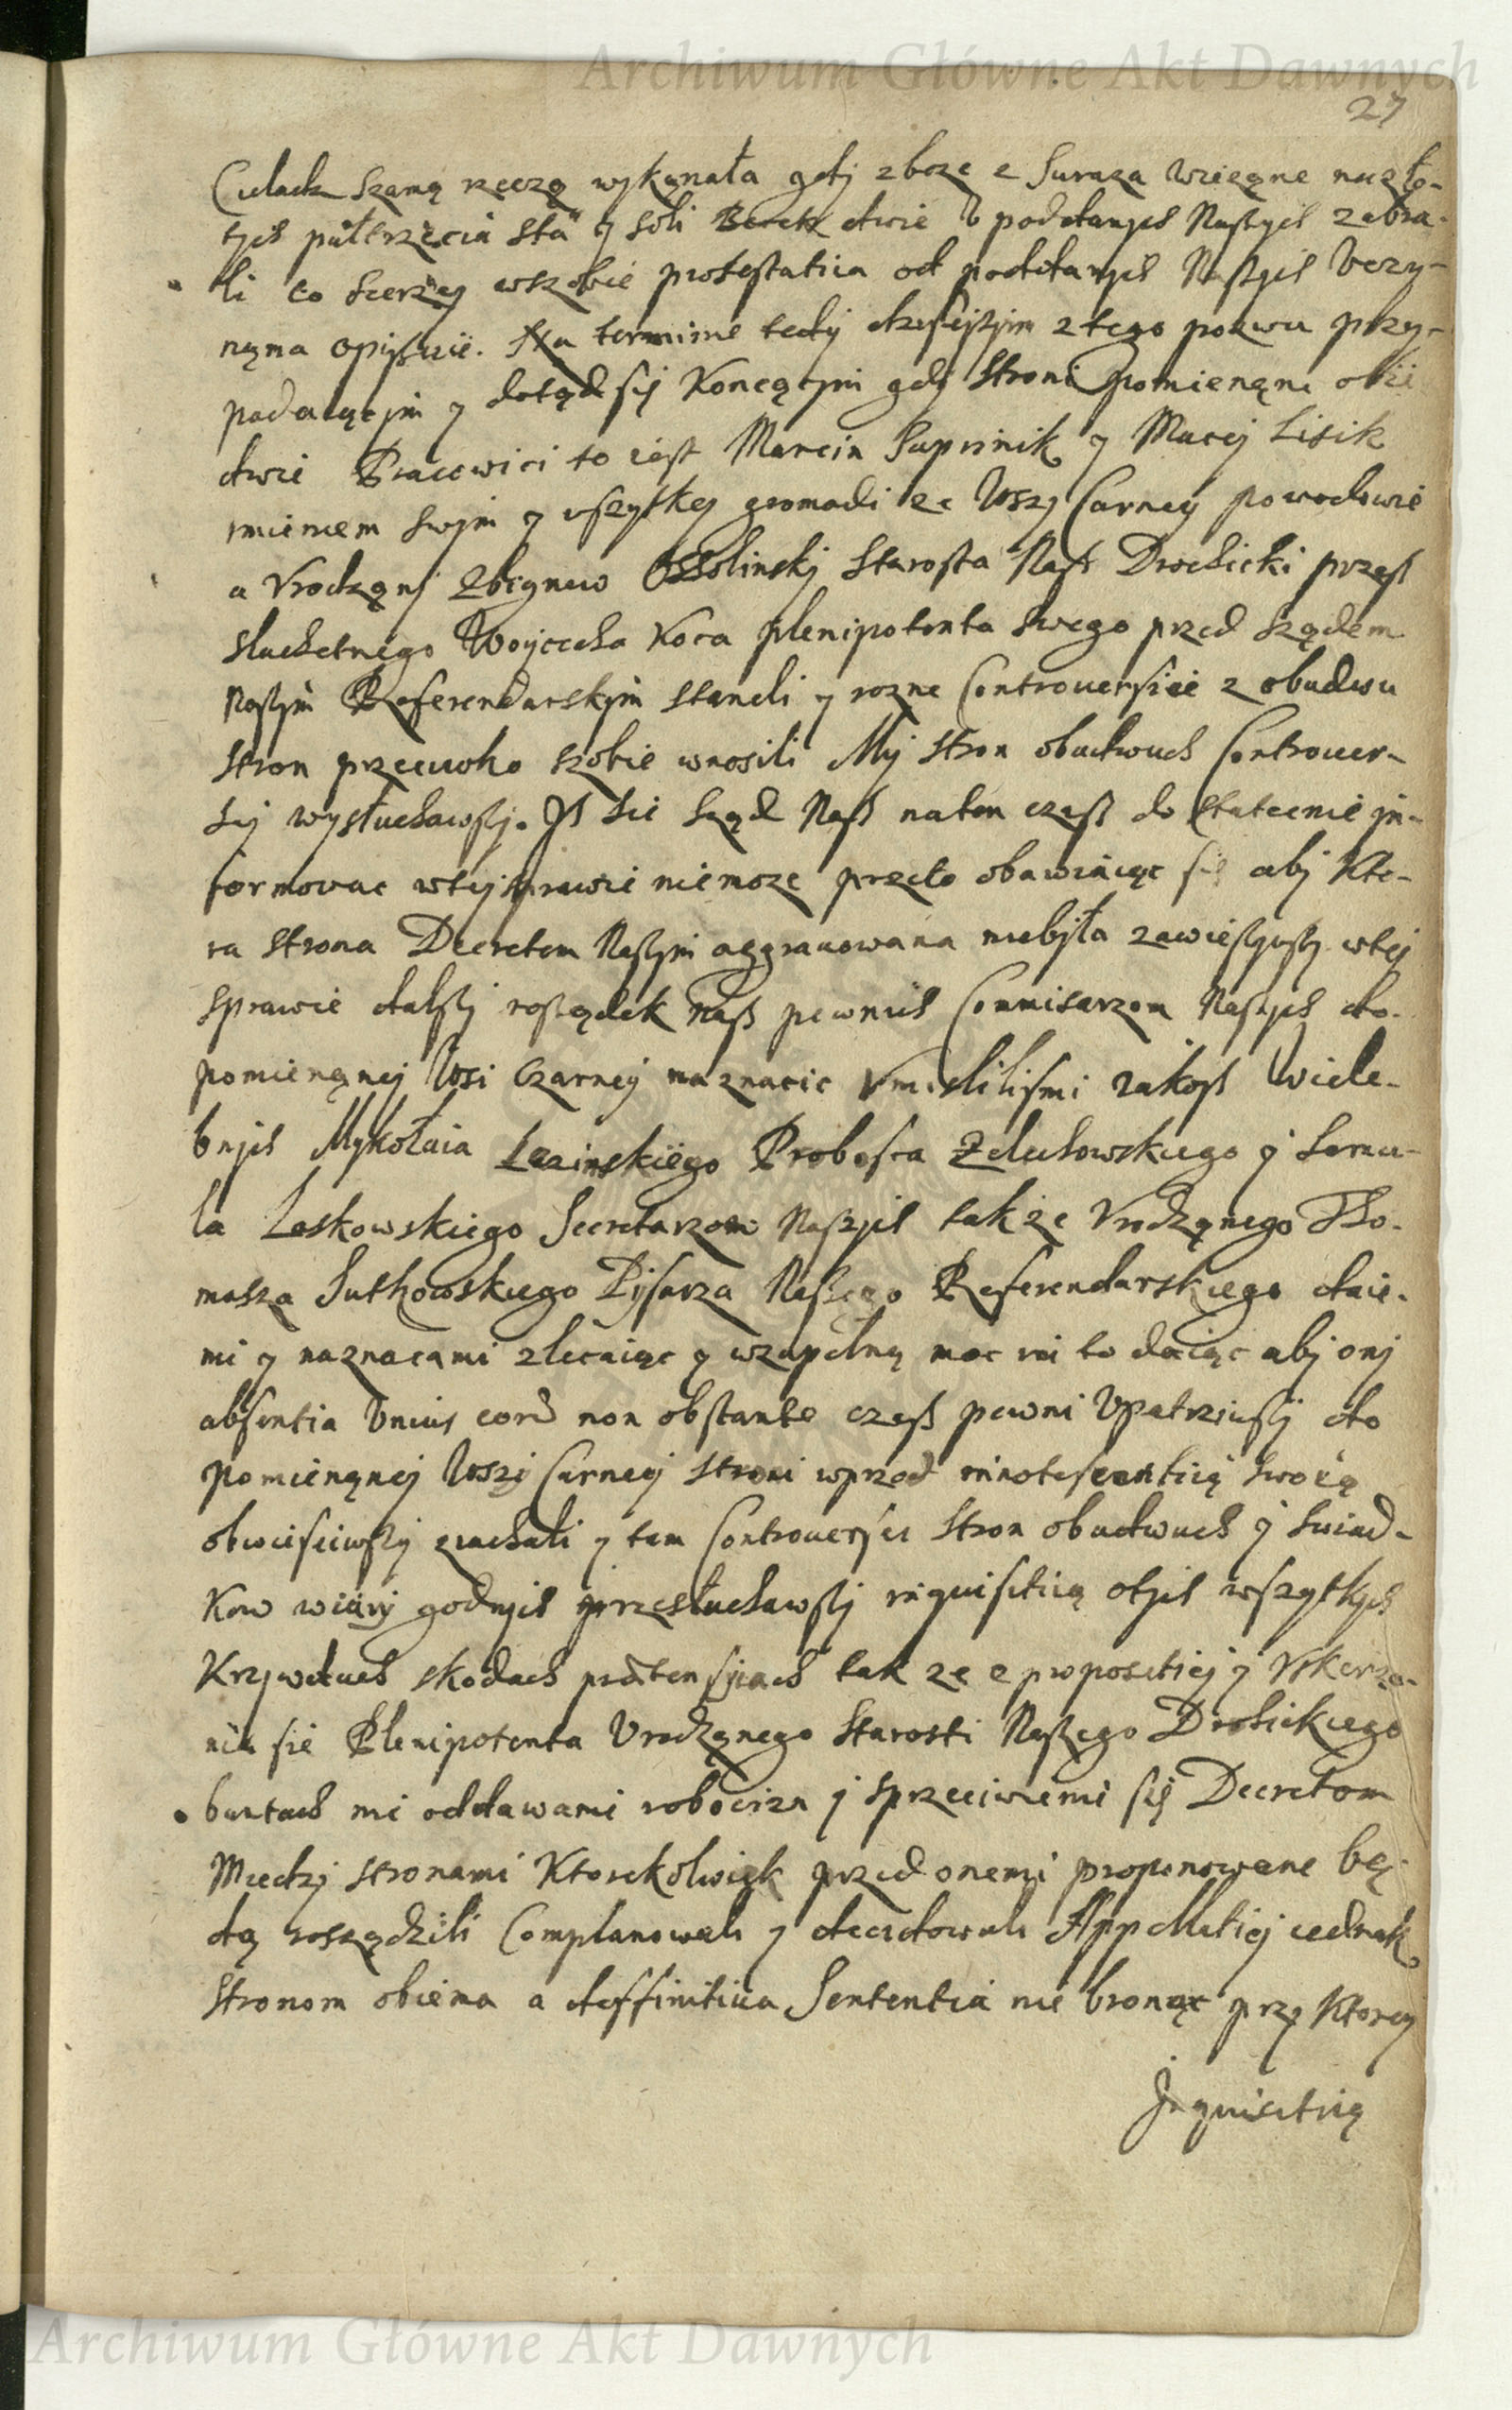 Archiwum Główne Akt Dawnych
27
szamą rzeczą wykonała gdj zboze z Suraza wzięąne na zło-
tych pułtrzecia sta y soli dwie v poddanych Naszych zabra-
li co szerzej w szobie protestatia od poddanych Naszych vczy-
nęna opisuie. Na terminie tedy dzisiejszym z tego pozwu przy-
padaiącjm y dotąd się Konczącjm gdj Stroni pomienęne obie
dwie Pracowici to iest Marcin Suprinik y Maciej Lisik
imieniem swjm y wszytkiej gromadi ze Wszj Carney powodowie
a Vrodzęnj Zbigniew Ossolinskj Starosta Nasz Drohicki przesz
slachetnego Wojcecha Koca plenipotenta swego przed sządem
Naszjm Referendarskjm staneli y rozne Controuersiie z obudwu
stron przeciwko szobie wnosili Mj stron obudwuch Controuer-
sij wysłuchawszj. Jsz sie sząd Nasz na ten czasz do statecnie jn-
formowac w tej sprawie niemoze przeto obawiaiąc się abj kto-
ra strona Decretem Naszjm aggrauowana niebjła zawiesziwszj w tej
sprawie dalszj rosządek nasz pewnich Commisarzom Naszjch do
pomienęnej Wsi Czarnej naznacic vmisliliśmi iakosz Wiele-
bnjch Mykołaia Lezinskiego Probosca Zeluchowskiego y Samu-
la Laskowskiego Secretarzow Naszjch także Vrodzęnego Tho-
masza Suthowskiego Pisarza Naszęgo Referendarskiego daie-
mi y naznacami zlecaiąc y wzupełną moc im to daiąc abj onj
absentia vnius eorum non obstante czasz pewni vpatrziwszj do
pomienęnej Wszj Carnej Stroni wprzod innotescentią swoią
obwiesciwszj ziachali y tam Controuersii Stron obudwuch y swiad-
kow wiary godnjch przesłuchawszj inquisitią otych wszytkych
Krzjwdach skodach prætensjiach tak ze e propositiej y vskerze-
nia sie Plenipotenta Vrodzęnego Starosti Naszęgo Drohickiego
buntach nie oddawani robocizn y sprzeciwieni się Decretom
Miedzj stronami Ktorekolwiek przed onemi proponowane bę-
dą rosządzili Complanowali y decidowali Appellatiej iednak
stronom obiema a deffinitiua Sententia nie bronąc przy Ktorej
Jnquisitią
Archiwum Główne Akt Dawnych